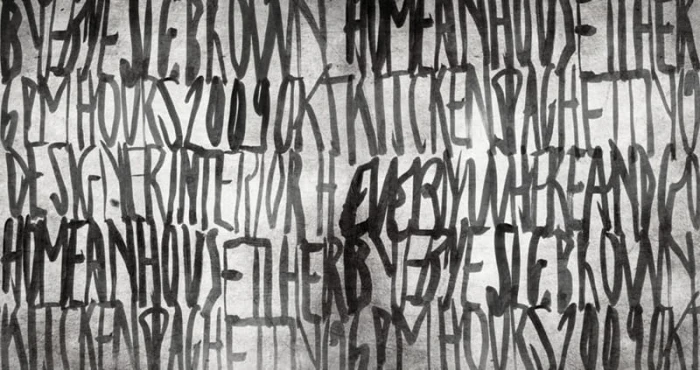 BYEME SIGBROWN HOMEANHOUSETTHER
6PM HOURS 2009 OKT KITCKEN SPAGHETTI
DESIGNER INTERIOR H EVERYWHERE AND GO
HOMEANHOUSETTHERBYEME SIGBROWN
KITCKEN SPAGHETTI 6PM HOURS 2009 OK